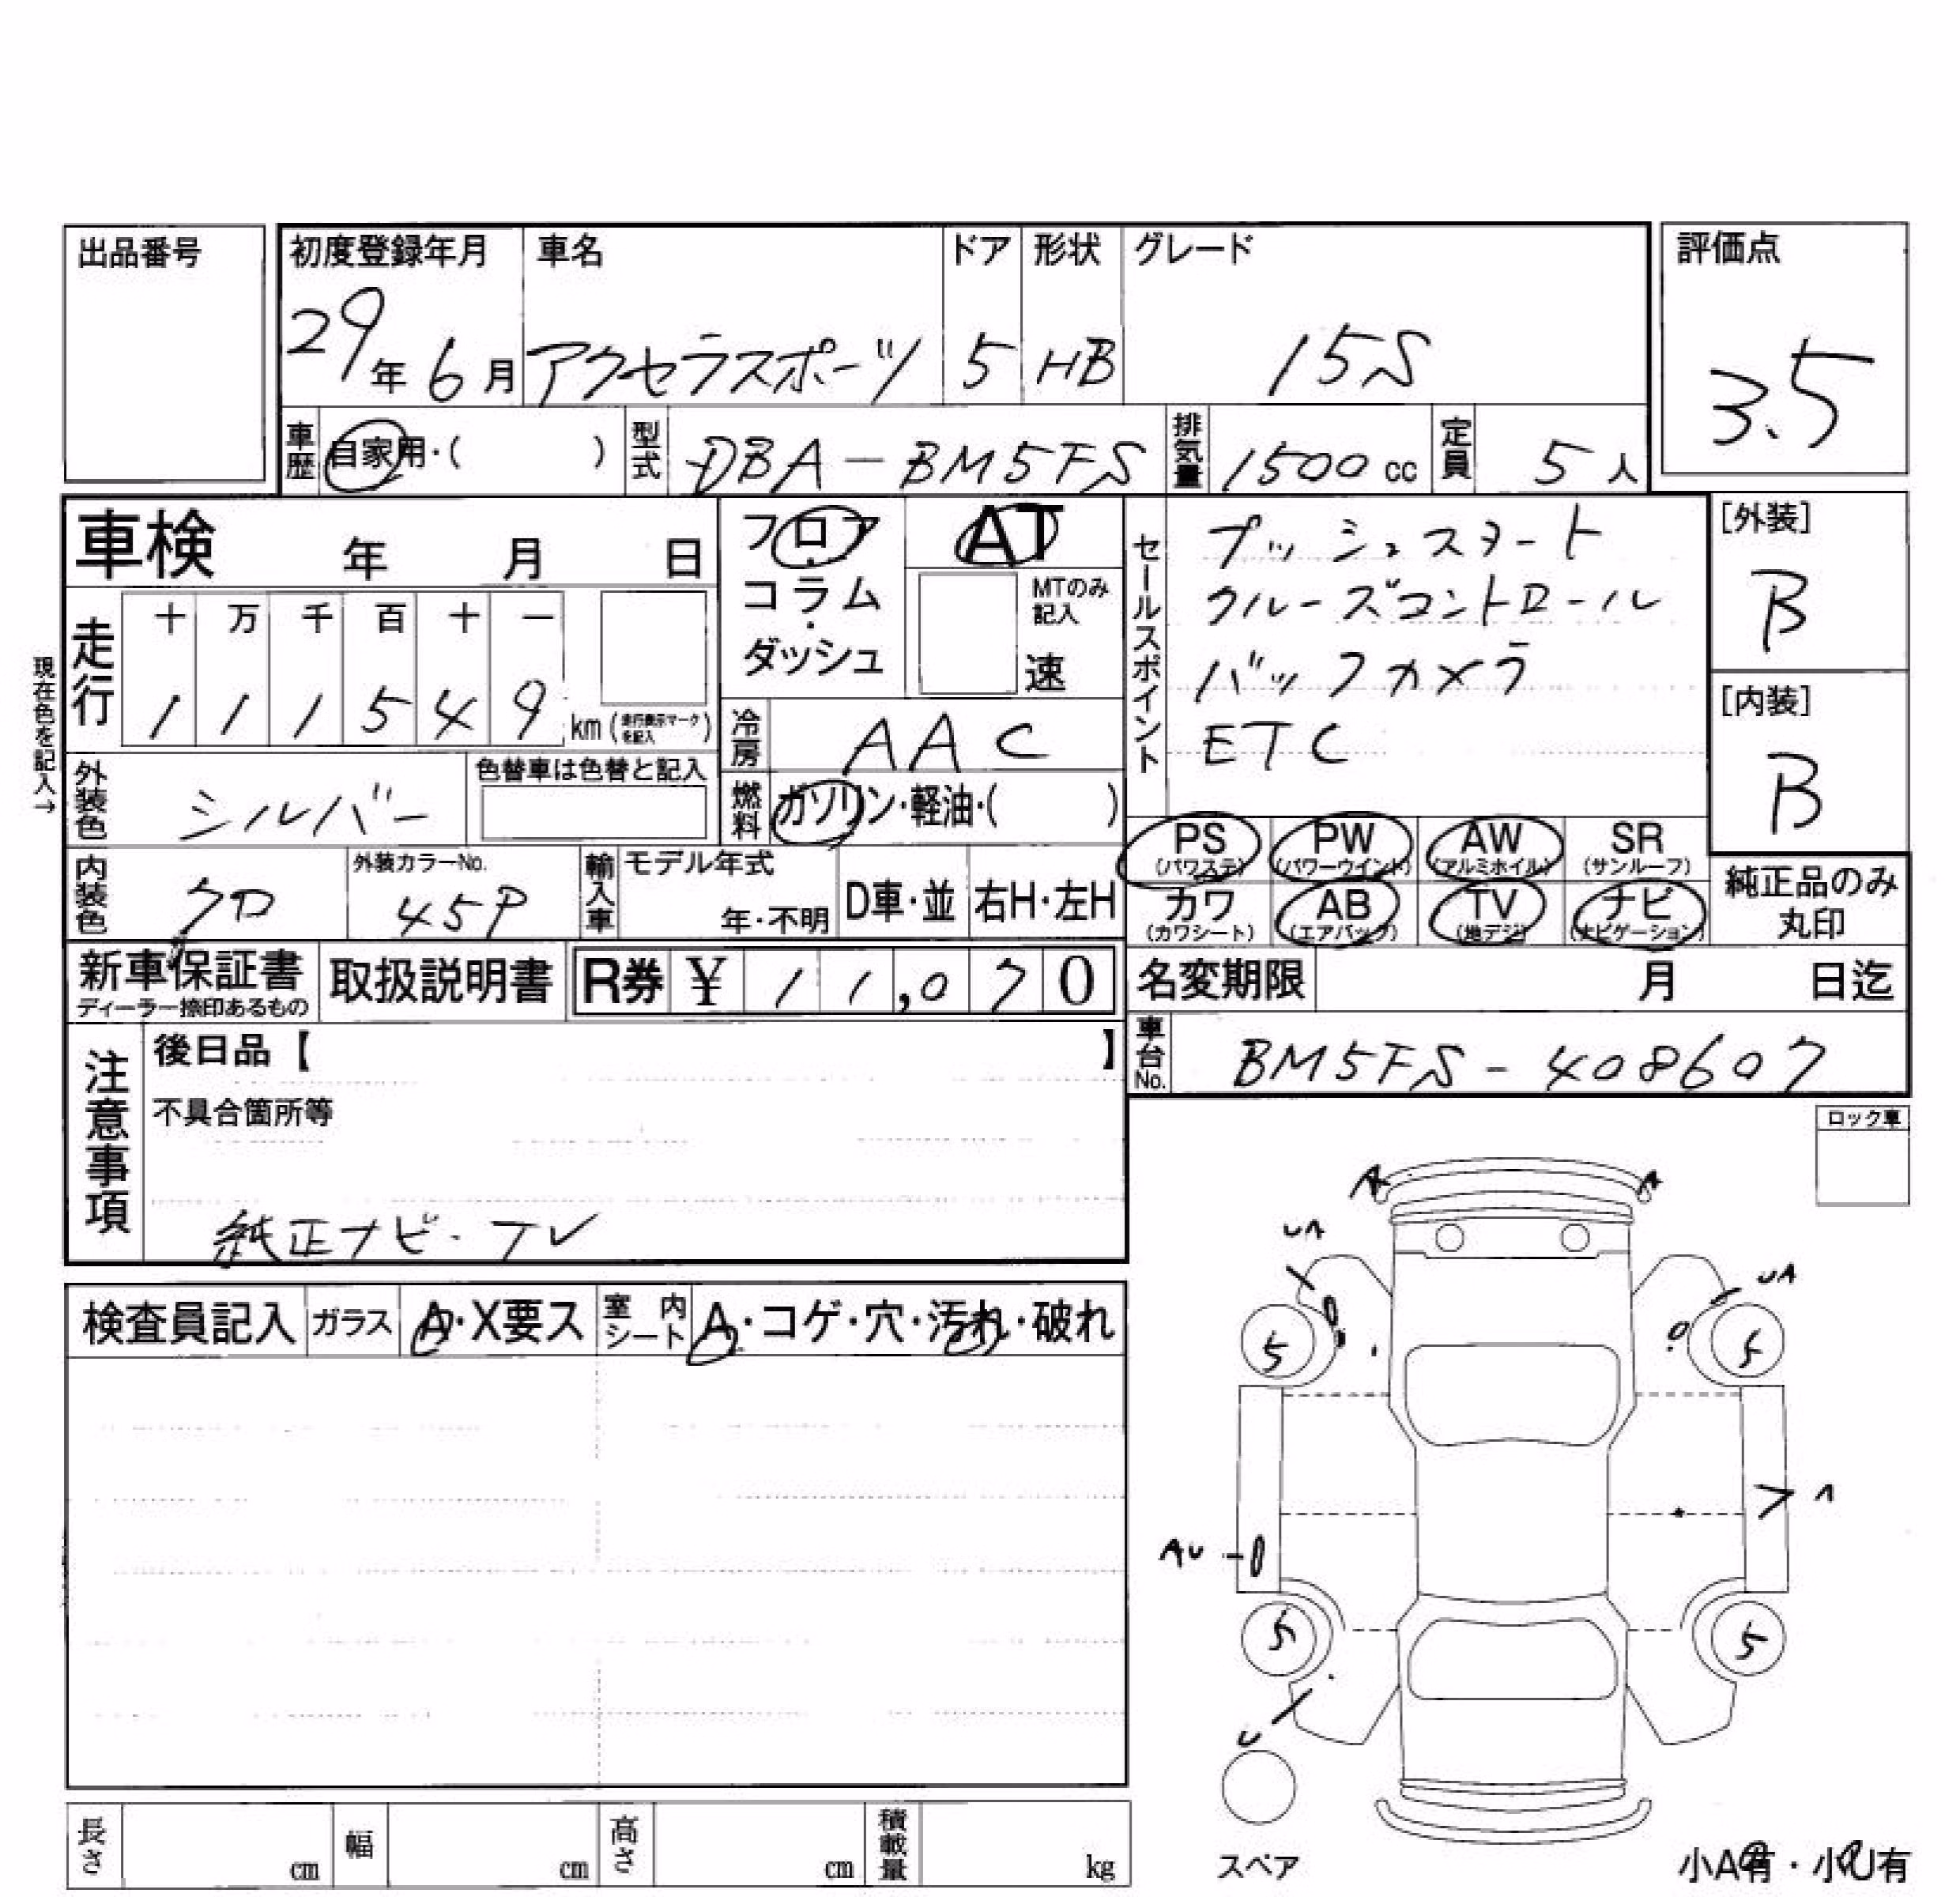 出品番号
初度登録年月 車名 ドア 形状 グレード 評価点
29年6月 アクセラスポーツ 5 HB 15S 3.5
車歴 自家用・( ) 型式 DBA-BM5FS 排気量 1500cc 定員 5人
車検 年 月 日
フロア・コラム・ダッシュ
AT
MTのみ記入
速
セールスポイント
プッシュスタート
クルーズコントロール
バックカメラ
ETC
[外装]
B
[内装]
B
現在色を記入→
走行 十 万 千 百 十 一
1 1 1 5 4 9 km (走行表示マークを記入)
冷房 AAC
外装色 シルバー 色替車は色替と記入
燃料 ガソリン・軽油・( )
PS (パワステ) PW (パワーウインド) AW (アルミホイル) SR (サンルーフ)
カワ (カワシート) AB (エアバック) TV (地デジ) ナビ (ナビゲーション)
純正品のみ
丸印
内装色 クロ 外装カラーNo. 45P 輸入車 モデル年式 年・不明 D車・並 右H・左H
新車保証書 ディーラー捺印あるもの 取扱説明書 R券 ¥ 11,070
名変期限 月 日迄
車台No. BM5FS-408607
注意事項
後日品【 】
不具合箇所等
純正ナビ・TV
ロック車
検査員記入 ガラス A・X要ス 室内シート A・コゲ・穴・汚れ・破れ
A A
UA UA
5 5
A
AU
5 5
U
スペア
小A有・小U有
長さ cm 幅 cm 高さ cm 積載量 kg